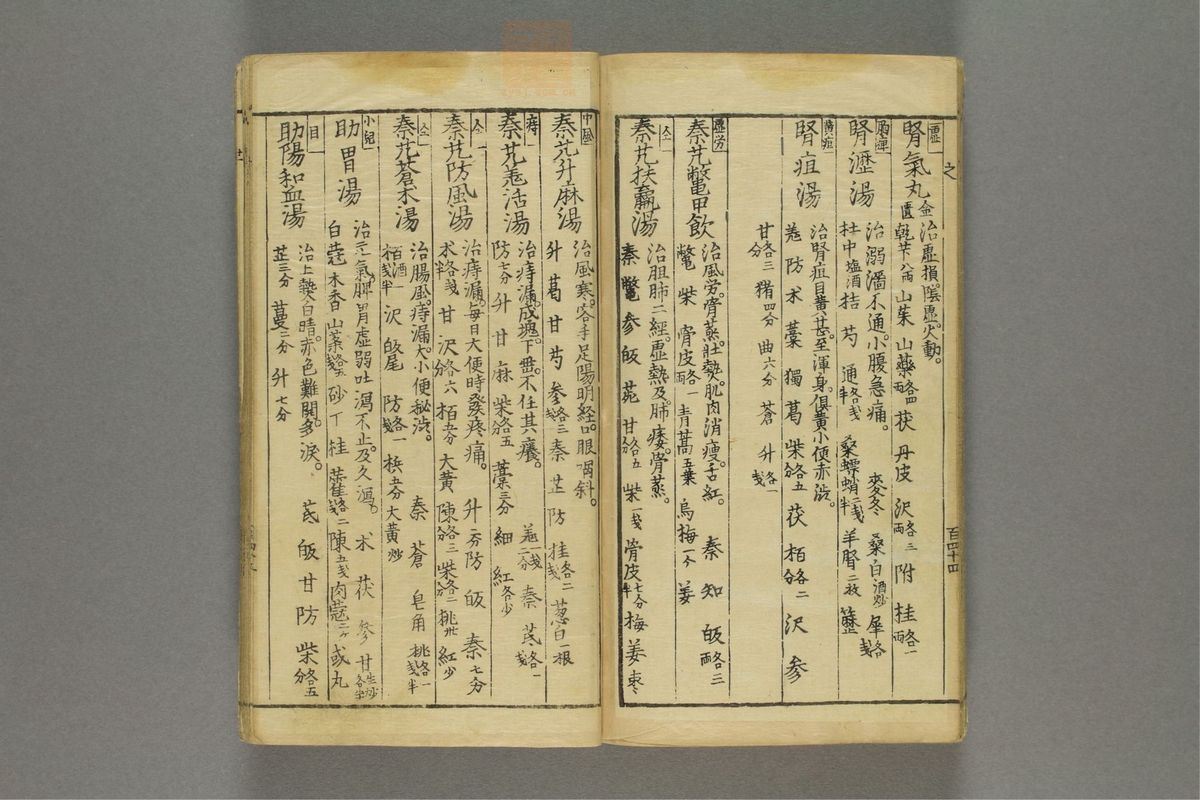 之
虛
腎氣丸 金匱
治虛損。陰虛。火動。
乾苄八両 山茱 山藥各四両 茯 丹皮 沢各三両 附 桂各一両
腎瀝湯
治溺濇不通。小腹急痛。
麥冬 桑白酒炒 犀各戔
杜中塩酒 桔 芍 通各戔半 桑螵蛸二戔半 羊腎二枚
黄疸
腎疸湯
治腎疸目黄甚。至渾身。俱黄小便赤渋。
羗 防 术 藁 獨 葛 柴各五分 茯 栢各二分 沢 参
甘各三分 猪四分 曲六分 蒼 升各一戔
虛労
秦艽鼈甲飲
治風労。骨蒸。壮熱。肌肉消瘦。舌紅。
秦 知 皈各三両
鼈 柴 骨皮各一両 青蒿五葉 烏梅一个 姜
仝
秦艽扶羸湯
治胆肺二經。虛熱。及肺痿。骨蒸。
秦 鼈 参 皈 菀 甘各五分 柴一戔 骨皮七分半 梅 姜 枣
百四十四
中風
秦艽升麻湯
治風寒。客手足陽明經。口眼喎斜。
升 葛 甘 芍 参各三戔 秦 芷 防 桂各二戔 葱白一根
痔
秦艽羗活湯
治痔漏。成塊。下垂。不任其癢。
羗一戔二分 秦 芪各一戔
防七分 升 甘 麻 柴各五分 藁三分 細 紅各少
仝
秦艽防風湯
治痔漏。每日大便時發疼痛。
升二分 防 皈 秦七分
术各戔半 甘 沢各六分 栢五分 大黄 陳各三分 柴各二分 桃卅 紅少
仝
秦艽蒼术湯
治腸風。痔漏大小便秘渋。
秦 蒼 皂角 桃各一戔半
栢酒一戔半 沢 皈尾 防各一戔 梹五分 大黄炒
小兒
助胃湯
治冷氣脾胃虛弱吐瀉不止。及久瀉。
术 茯 参 甘
白蔻 木香 山藥各五戔 砂 丁 桂 藿各二戔 陳五戔 肉蔻二ケ 或丸
目
助陽和血湯
治上熱。白睛。赤色難開。多淚。
芪 皈 甘 防 柴各五分
芷三分 蔓二分 升七分